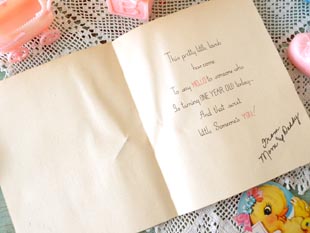 This pretty little lamb
has come
To say HELLO to someone who
Is turning ONE YEAR OLD today—
And that sweet
little Someone's YOU!
From
Mom & Daddy